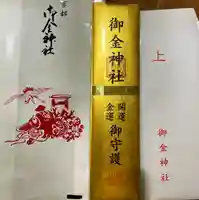 御金神社
御金神社
開運
金運
御守護
上
御金神社